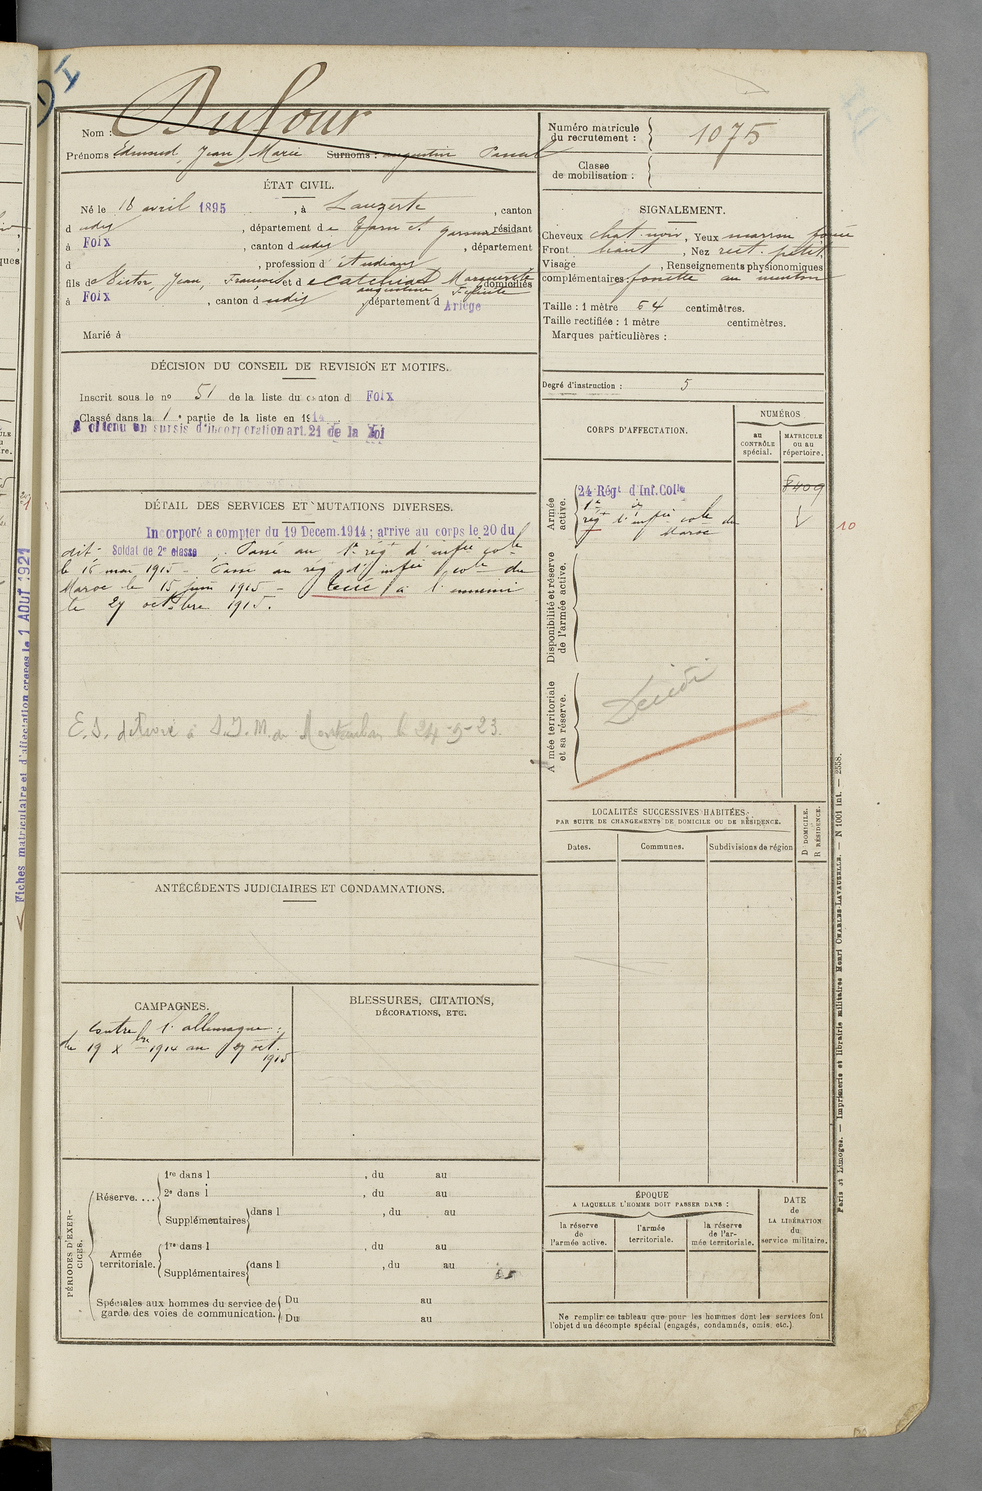 I
Nom : Dufour
Prénoms Edmond, Jean, Marie Surnoms : augustin Pascal
ÉTAT CIVIL.
Né le 18 avril 1895, à Lauzerte, canton
d udis, département de Tarn et garonne résidant
à Foix, canton d udis, département
d , profession d' étudiant
fils de Victor, Jean, François et d e Marguerite domiciliés
augustine
à Foix, canton d udis, département d Ariège
Marié à
DÉCISION DU CONSEIL DE REVISION ET MOTIFS.
Inscrit sous le nº 51 de la liste du canton d Foix
Classé dans la 1e partie de la liste en 1914
A obtenu un sursis d'incorporation art. 21 de la loi
DÉTAIL DES SERVICES ET MUTATIONS DIVERSES.
Incorporé a compter du 19 Décem. 1914 ; arrive au corps le 20 du
dit - Soldat de 2e classe. Passé au 1er régt d'infie cole
le 16 mai 1915 - Passé au régt d'infie cole du
Maroc le 15 juin 1915 - tué à l'ennemi
le 27 octobre 1915.
E.S. détruit à S.I.M. de Montauban le 24-5-23.
ANTÉCÉDENTS JUDICIAIRES ET CONDAMNATIONS.
CAMPAGNES.
Contre l'allemagne :
du 19 Xbre 1914 au 27 oct.
1915
BLESSURES, CITATIONS,
DÉCORATIONS, ETC.
PÉRIODES D'EXERCICES.
Réserve....
1re dans l , du au
2e dans l , du au
Supplémentaires dans l , du au
Armée territoriale.
1re dans l , du au
Supplémentaires dans l , du au
Spéciales aux hommes du service de garde des voies de communication.
Du au
Du au
Numéro matricule du recrutement : 1075
Classe de mobilisation :
SIGNALEMENT.
Cheveux chat. noir, Yeux marron foncé
Front haut, Nez rect. petit
Visage , Renseignements physionomiques
complémentaires : fossette au menton
Taille : 1 mètre 64 centimètres.
Taille rectifiée : 1 mètre centimètres.
Marques particulières :
Degré d'instruction : 5
CORPS D'AFFECTATION.
NUMÉROS
au CONTRÔLE spécial.
MATRICULE ou au répertoire.
Armée active.
24 Régt d'Inf. Colle
8409
1er de
régt d'infie cole du
Maroc
10
Disponibilité et réserve de l'armée active.
Armée territoriale et sa réserve.
Décédé
LOCALITÉS SUCCESSIVES HABITÉES,
PAR SUITE DE CHANGEMENTS DE DOMICILE OU DE RÉSIDENCE.
D DOMICILE.
R RÉSIDENCE.
Dates.
Communes.
Subdivisions de région
ÉPOQUE
A LAQUELLE L'HOMME DOIT PASSER DANS :
la réserve de l'armée active.
l'armée territoriale.
la réserve de l'armée territoriale.
DATE de LA LIBÉRATION du service militaire.
Ne remplir ce tableau que pour les hommes dont les services font
l'objet d'un décompte spécial (engagés, condamnés, omis, etc.)
Paris et Limoges. — Imprimerie et librairie militaires Henri CHARLES-LAVAUZELLE. — N 1001 int. — 2558.
Fiches matriculaire et d'affectation créées le 1 AOUT 1921